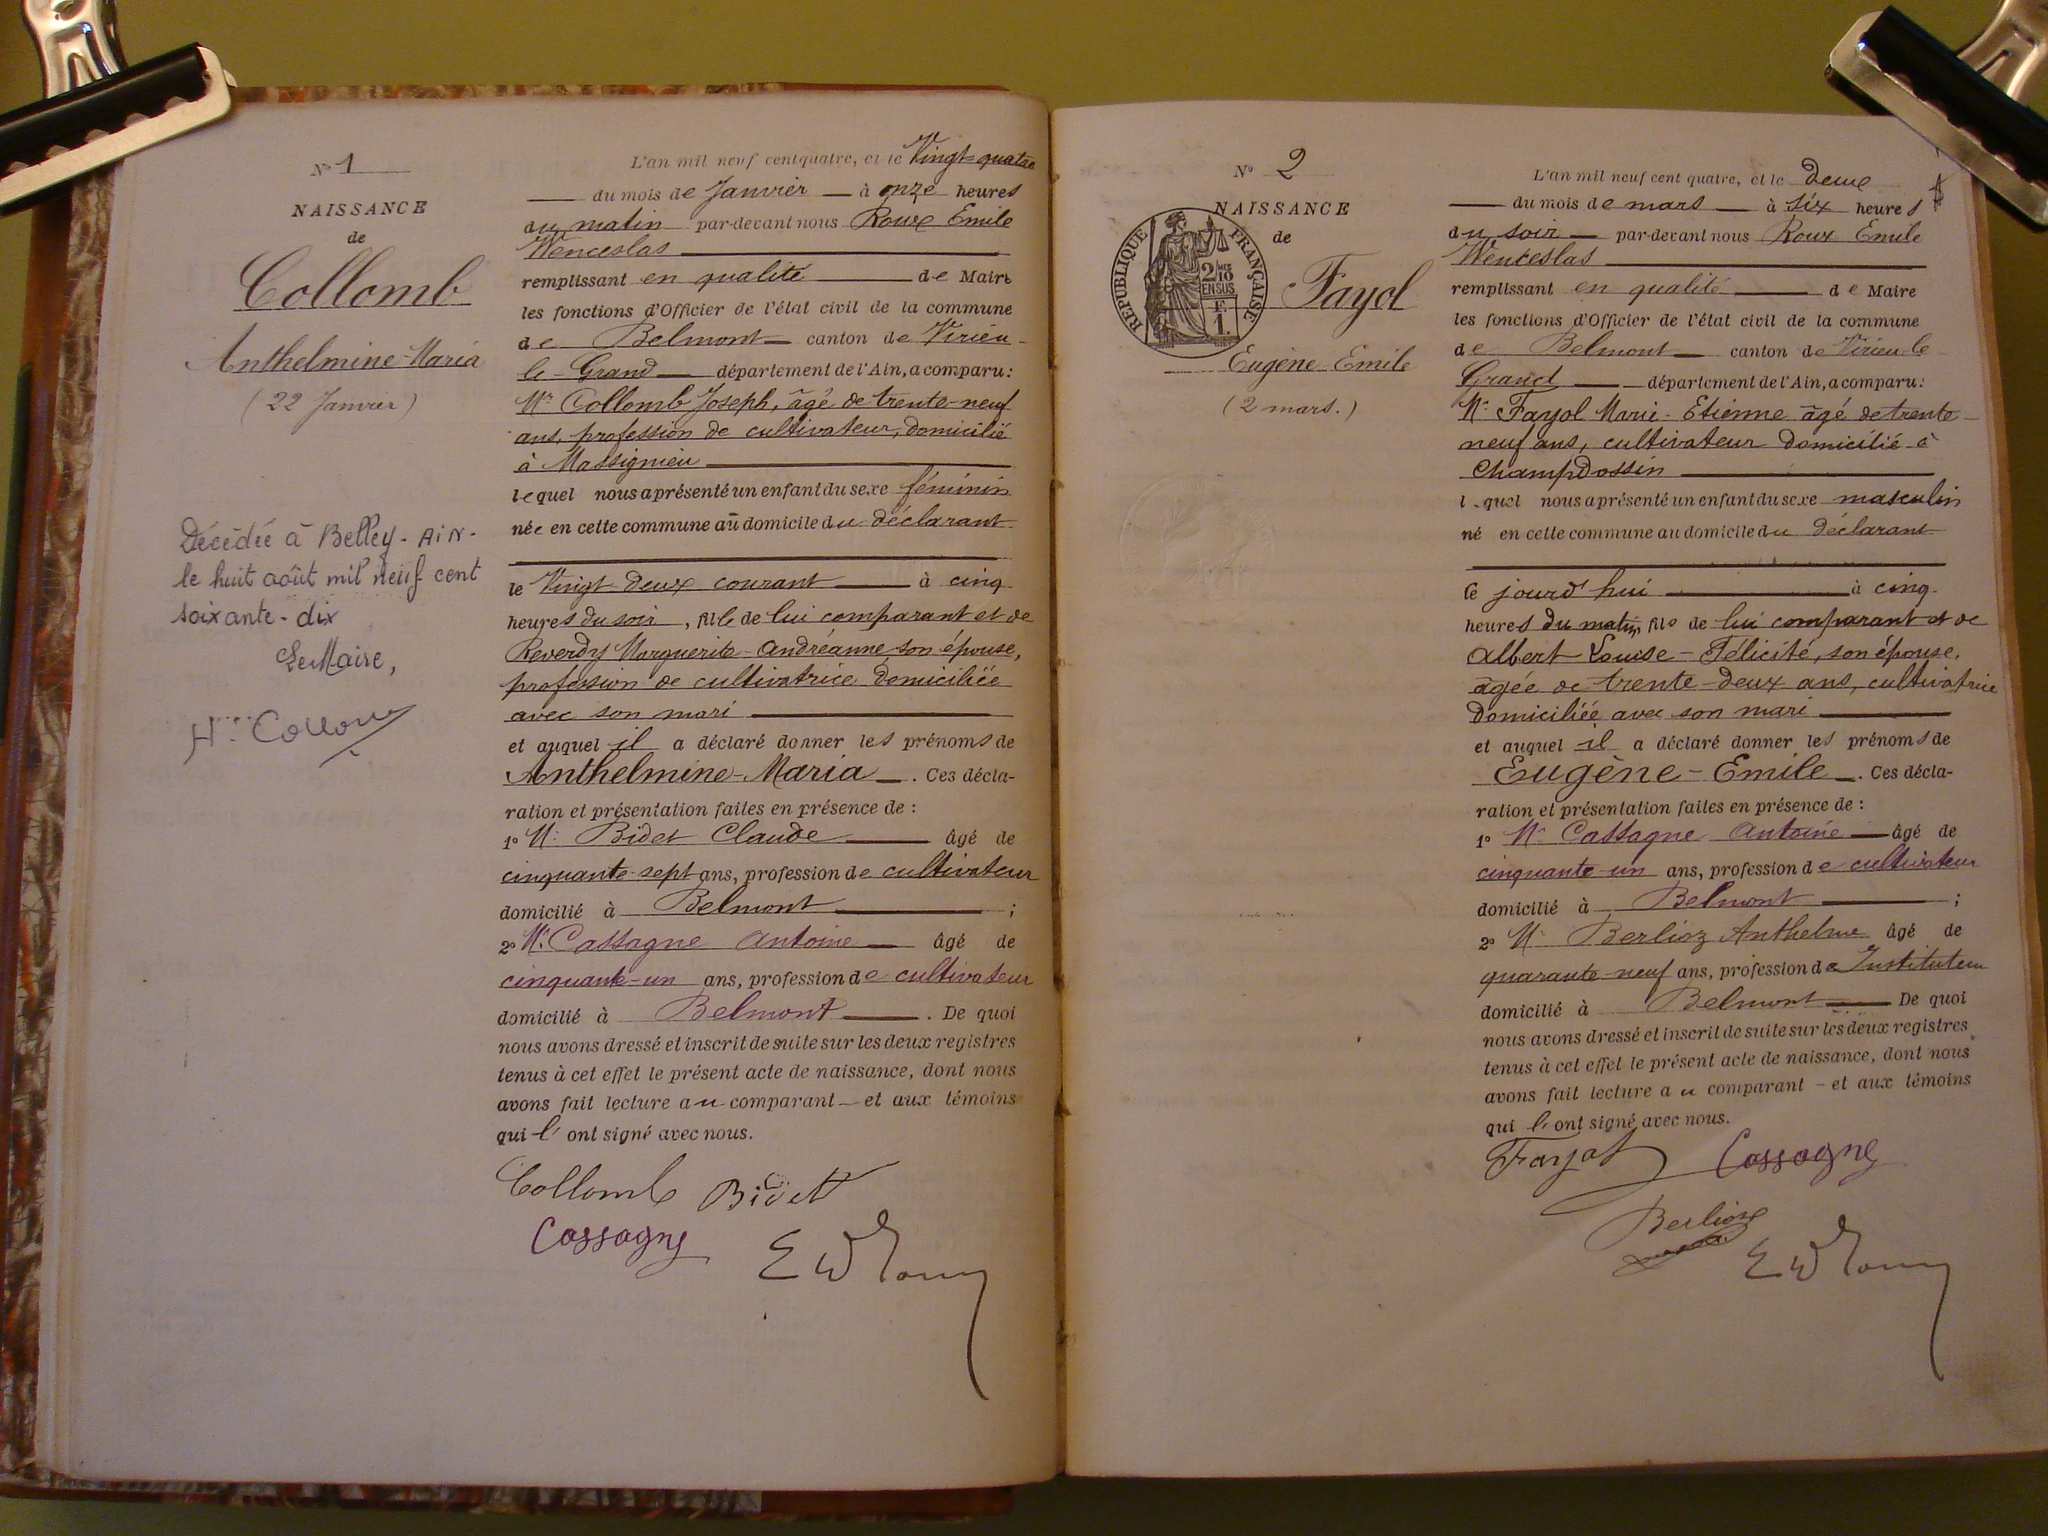 Nº 1
NAISSANCE
de
Collomb
Anthelmine-Maria
(22 Janvier)
Décédée à Belley - AiN -
le huit août mil neuf cent
soixante-dix
Le Maire,
L'an mil neuf cent quatre, et le Vingt-quatre
du mois de Janvier à onze heures
du matin par-devant nous Roux Emile
Wenceslas
remplissant en qualité de Maire
les fonctions d'Officier de l'état civil de la commune
de Belmont canton de Virieu-
le-Grand département de l'Ain, a comparu:
Mr Collomb Joseph, âgé de trente-neuf
ans, profession de cultivateur, domicilié
à Massignieu
lequel nous a présenté un enfant du sexe féminin
née en cette commune au domicile du déclarant
le Vingt-deux courant à cinq
heures du soir, fille de lui comparant et de
Reverdy Marguerite-Andréanne son épouse,
profession de cultivatrice domiciliée
avec son mari
et auquel il a déclaré donner les prénoms de
Anthelmine-Maria. Ces décla-
ration et présentation faites en présence de :
1º M. Bidet Claude âgé de
cinquante-sept ans, profession de cultivateur
domicilié à Belmont ;
2º Mr. Cassagne Antoine âgé de
cinquante-un ans, profession de cultivateur
domicilié à Belmont. De quoi
nous avons dressé et inscrit de suite sur les deux registres
tenus à cet effet le présent acte de naissance, dont nous
avons fait lecture au comparant et aux témoins
qui l'ont signé avec nous.
Collomb Bidet
Cassagne E W Roux
Nº 2
NAISSANCE
de
RÉPUBLIQUE FRANÇAISE
2/10 EN SUS
F.
1.
Fayol
Eugène-Emile
(2 mars.)
L'an mil neuf cent quatre, et le deux
du mois de mars à six heures
du soir par-devant nous Roux Emile
Wenceslas
remplissant en qualité de Maire
les fonctions d'Officier de l'état civil de la commune
de Belmont canton de Virieu-le-
Grand département de l'Ain, a comparu:
Mr. Fayol Marie-Etienne âgé de trente-
neuf ans, cultivateur domicilié à
Champdossin
l quel nous a présenté un enfant du sexe masculin
né en cette commune au domicile du déclarant
ce jourd'hui à cinq
heures du matin, fils de lui comparant et de
Albert Louise-Félicité, son épouse,
âgée de trente-deux ans, cultivatrice
domiciliée avec son mari
et auquel il a déclaré donner les prénoms de
Eugène-Emile. Ces décla-
ration et présentation faites en présence de :
1º Mr. Cassagne Antoine âgé de
cinquante-un ans, profession de cultivateur
domicilié à Belmont ;
2º M. Berlioz Anthelme âgé de
quarante-neuf ans, profession de Instituteur
domicilié à Belmont De quoi
nous avons dressé et inscrit de suite sur les deux registres
tenus à cet effet le présent acte de naissance, dont nous
avons fait lecture au comparant et aux témoins
qui l'ont signé avec nous.
Fayol Cassagne
Berlioz
E W Roux